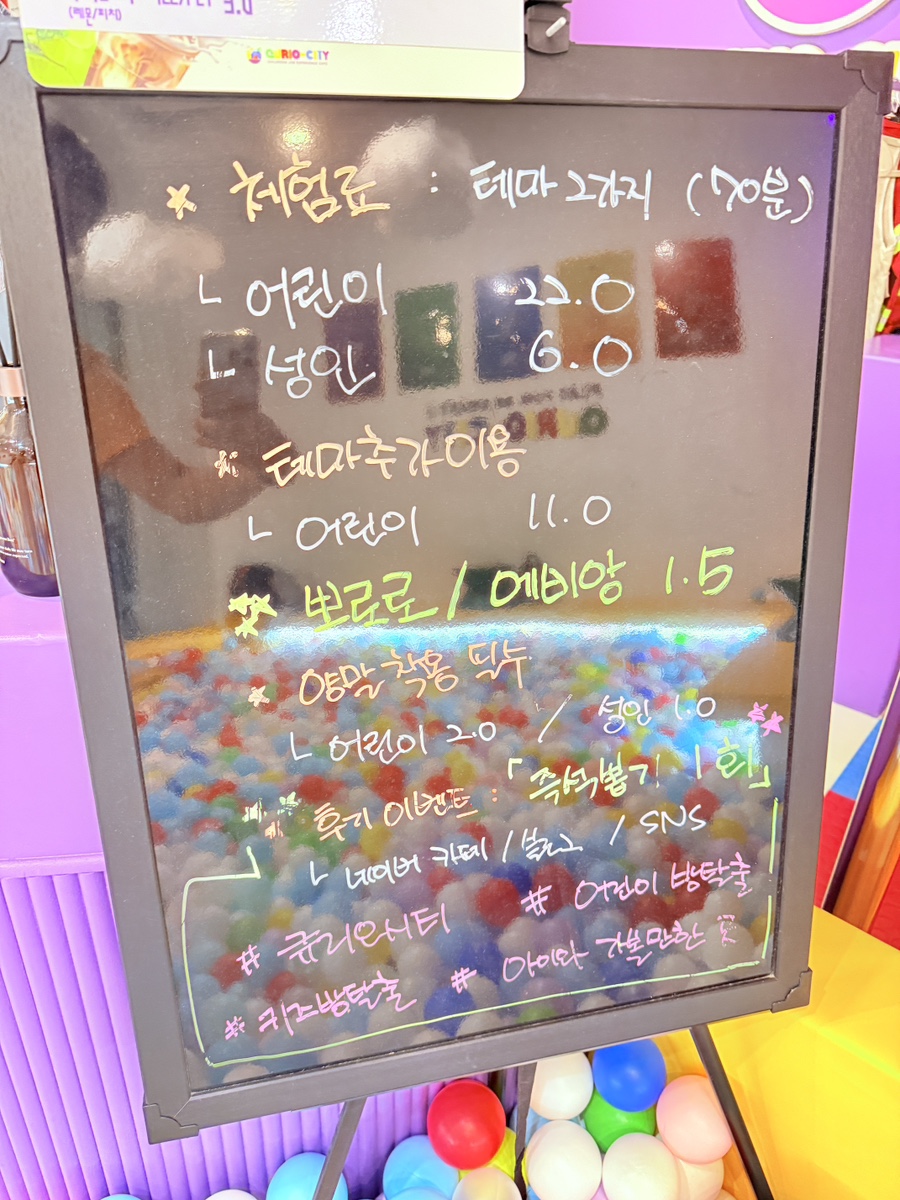 3.0
(레몬/피치)
CURIO-CITY
* 체험료 : 테마 2가지 (70분)
ㄴ 어린이 22.0
ㄴ 성인 6.0
* 테마추가이용
ㄴ 어린이 11.0
뽀로로 / 에비앙 1.5
* 양말 착용 필수
ㄴ 어린이 2.0 / 성인 1.0
후기 이벤트 : 「즉석뽑기 1회」
ㄴ 네이버 카페 / 블로그 / SNS
# 큐리오시티 # 어린이 방탈출
# 키즈방탈출 # 아이와 가볼만한 곳